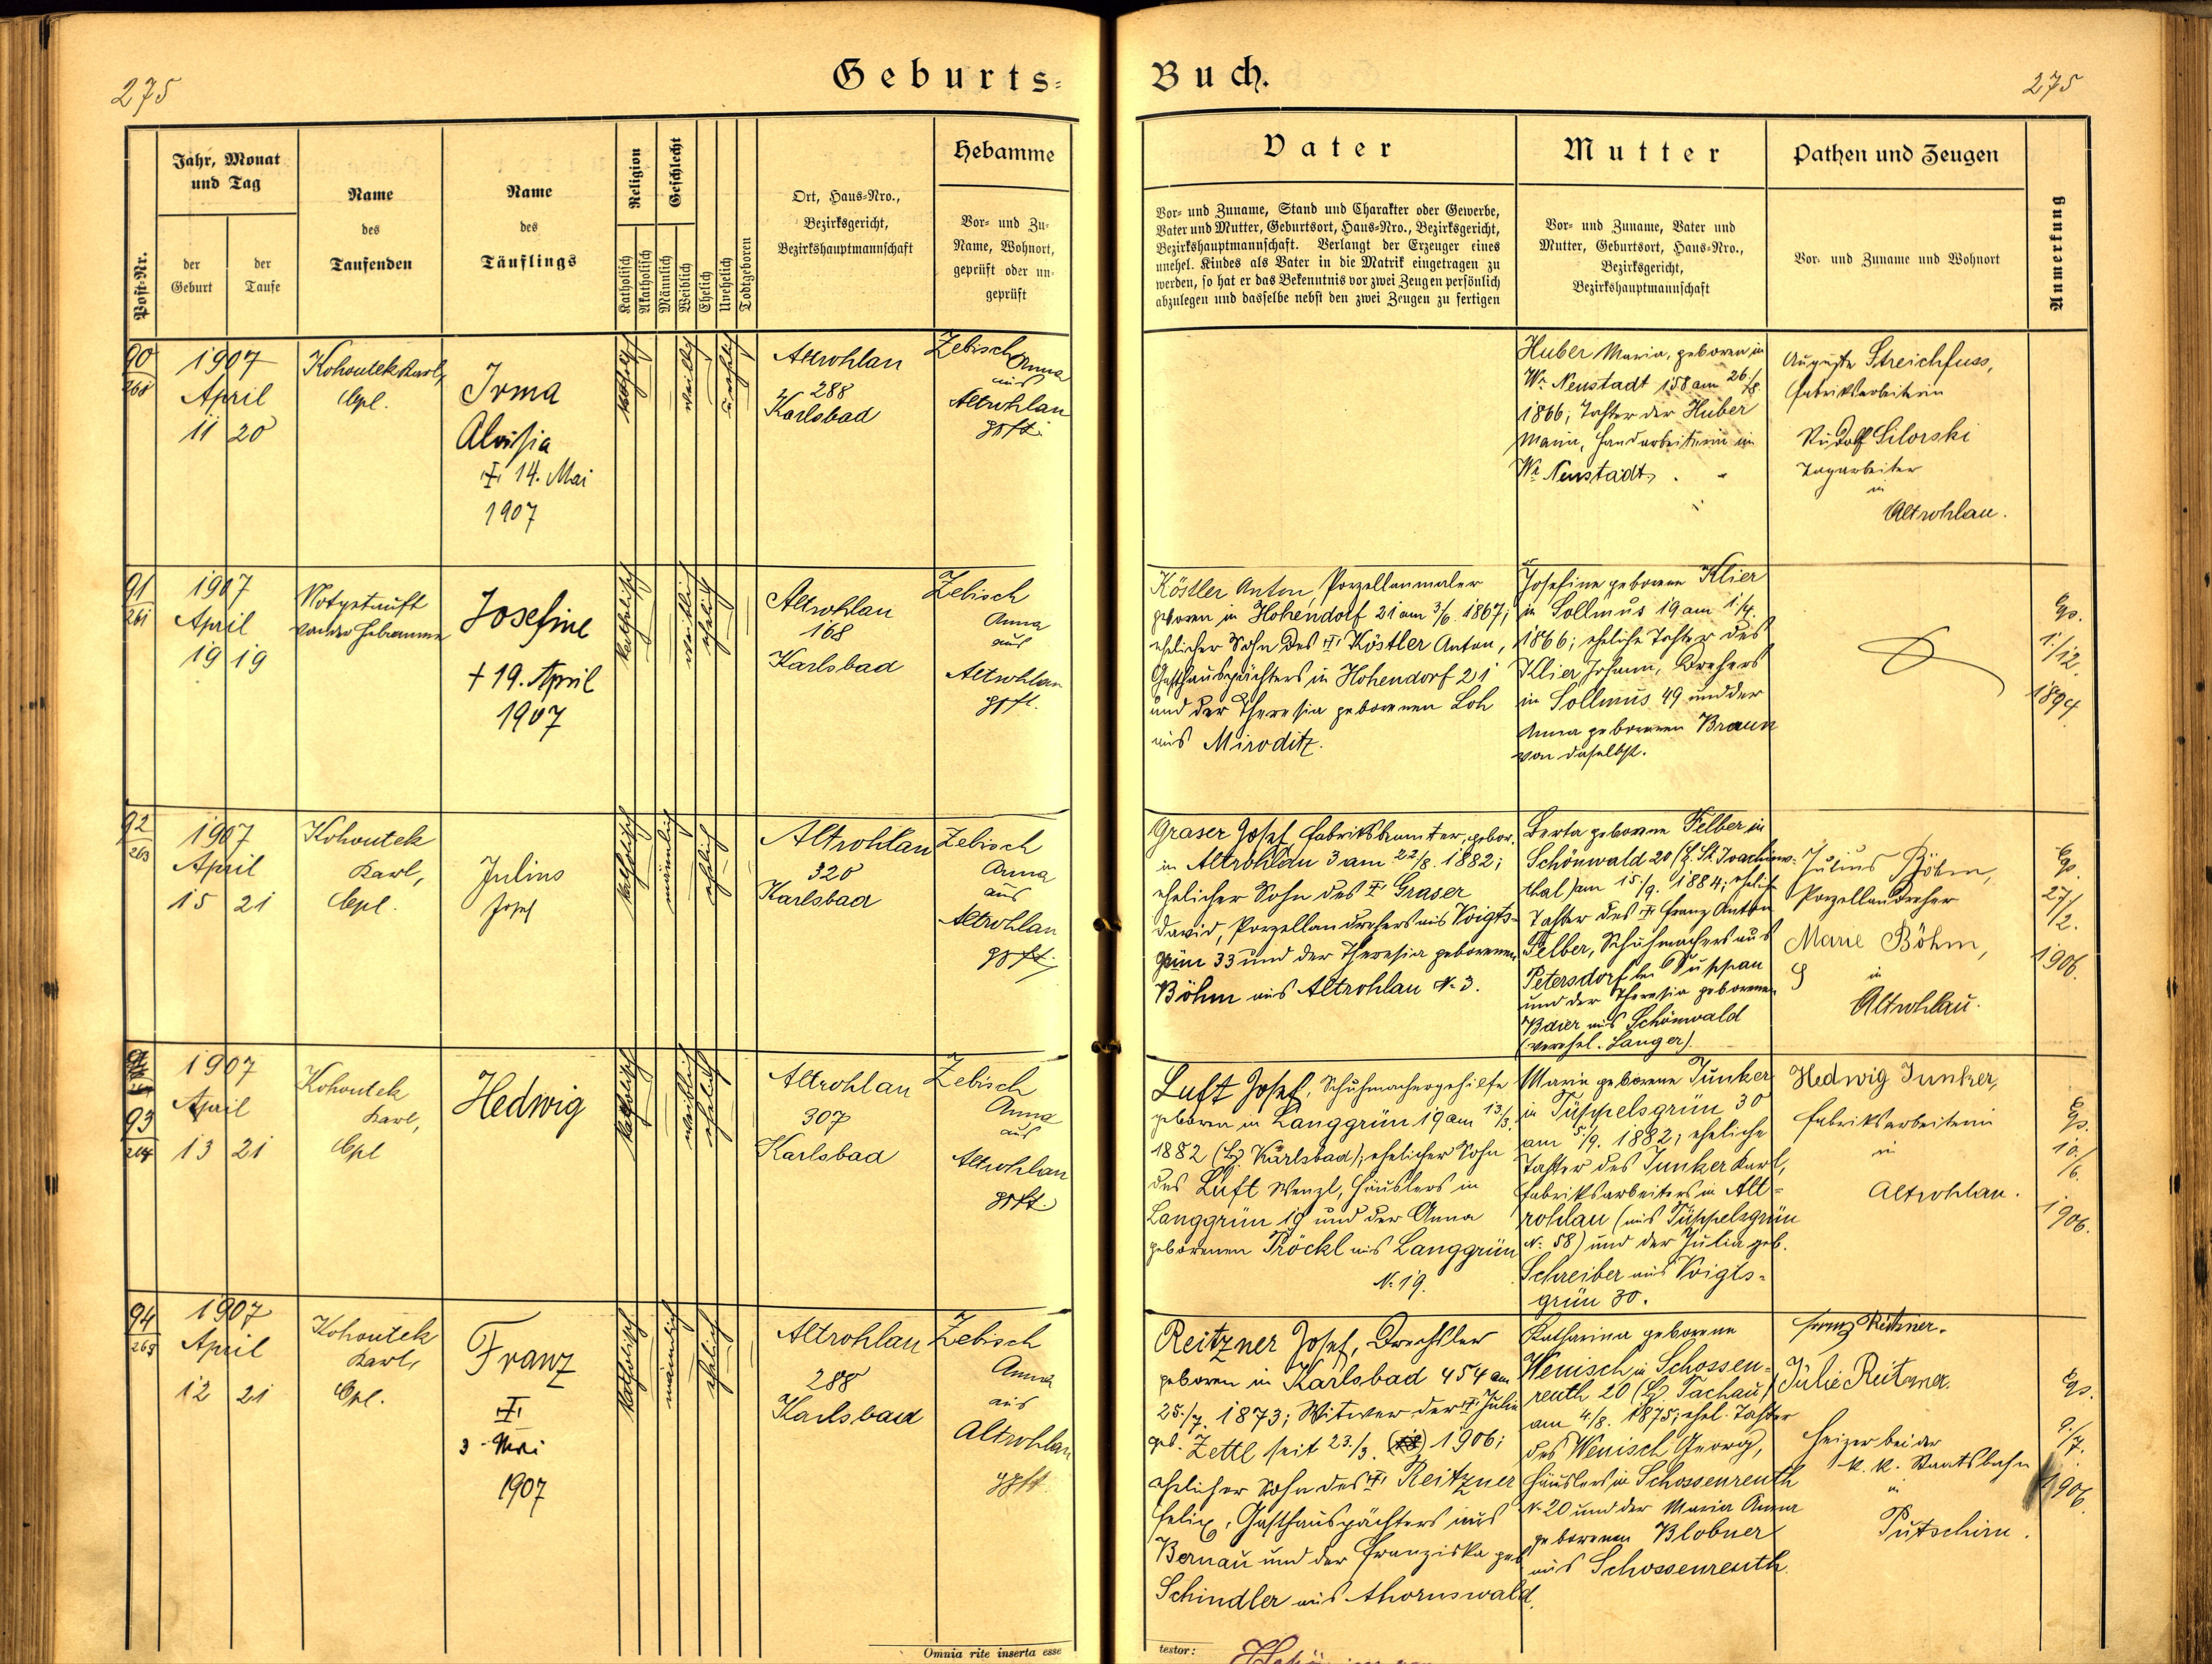 275
Geburts-
Jahr, Monat
und Tag
Post-Nr.
der
Geburt
der
Taufe
Name
des
Taufenden
Name
des
Täuflings
Religion
Katholisch
Akatholisch
Geschlecht
Männlich
Weiblich
Ehelich
Unehelich
Todtgeboren
Ort, Haus-Nro.,
Bezirksgericht,
Bezirkshauptmannschaft
Hebamme
Vor- und Zu-
Name, Wohnort,
geprüft oder un-
geprüft
90
1907
April
11 20
Kohoutek Karl,
Cpl.
Irma
Aloisia
14. Mai
1907
katholisch
weiblich
unehelich
Altrohlau
288
Karlsbad
Zebisch
Anna
aus
Altrohlau
gpft.
91
261
1907
April
19 19
Notgetauft
von der Hebamme
Josefine
† 19. April
1907
katholisch
weiblich
ehelich
Altrohlau
168
Karlsbad
Zebisch
Anna
aus
Altrohlau
gpft.
92
263
1907
April
15 21
Kohoutek
Karl,
Cpl.
Julius
Josef
katholisch
männlich
ehelich
Altrohlau
320
Karlsbad
Zebisch
Anna
aus
Altrohlau
gpft.
93
264
1907
April
13 21
Kohoutek
Karl,
Cpl
Hedwig
katholisch
weiblich
ehelich
Altrohlau
307
Karlsbad
Zebisch
Anna
aus
Altrohlau
gpft.
94
265
1907
April
12 21
Kohoutek
Karl,
Cpl.
Franz
3. Mai
1907
katholisch
männlich
ehelich
Altrohlau
288
Karlsbad
Zebisch
Anna
aus
Altrohlau
gpft.
Omnia rite inserta esse
Buch.
275
Vater
Vor- und Zuname, Stand und Charakter oder Gewerbe,
Vater und Mutter, Geburtsort, Haus-Nro., Bezirksgericht,
Bezirkshauptmannschaft. Verlangt der Erzeuger eines
unehel. Kindes als Vater in die Matrik eingetragen zu
werden, so hat er das Bekenntnis vor zwei Zeugen persönlich
abzulegen und dasselbe nebst den zwei Zeugen zu fertigen
Mutter
Vor- und Zuname, Vater und
Mutter, Geburtsort, Haus-Nro.,
Bezirksgericht,
Bezirkshauptmannschaft
Pathen und Zeugen
Vor- und Zuname und Wohnort
Anmerkung
Huber Maria, geboren in
Wr. Neustadt 158 am 26./8.
1866; Tochter der Huber
Maria, Handarbeiterin in
Wr. Neustadt.
Auguste Streichfuss,
Fabriksarbeiterin
Rudolf Silorski
Tagarbeiter
in
Altrohlau.
Köstler Anton, Porzellanmaler
geboren in Hohendorf 21 am 3/6. 1867;
ehelicher Sohn des Köstler Anton,
Gasthauspächters in Hohendorf 21
und der Theresia geborenen Loh
aus Miroditz.
Josefine geborene Klier
in Sollmus 19 am 1/4.
1866; eheliche Tochter des
Klier Johann, Drehers
in Sollmus 49 und der
Anna geborenen Braun
von daselbst.
1./12.
1894
Graser Josef Fabriksbeamter, gebor.
in Altrohlau 3 am 22/8. 1882;
ehelicher Sohn des Graser
David, Porzellandrehers aus Voigts-
grün 33 und der Theresia geborenen
Böhm aus Altrohlau N. 3.
Berta geborene Felber in
Schönwald 20 (Bz. St. Joachims-
thal) am 15./9. 1884; ehelich
Tochter des Franz Anton
Felber, Schuhmachers aus
Petersdorf bei Duppau
und der Theresia geborenen
Baier aus Schönwald
(verehel. Langer).
Julius Böhm,
Porzellandreher
Marie Böhm,
in
Altrohlau.
27/2.
1906.
Luft Josef, Schuhmachergehilfe
geboren in Langgrün 19 am 13/3.
1882 (Bz. Karlsbad); ehelicher Sohn
des Luft Wenzl, Häuslers in
Langgrün 19 und der Anna
geborenen Pröckl aus Langgrün
N. 19.
Marie geborene Junker
in Tüppelsgrün 30
am 5/9. 1882; eheliche
Tochter des Junker Karl,
Fabriksarbeiters in Alt-
rohlau (aus Tüppelsgrün
N. 58) und der Julia geb.
Schreiber aus Voigts-
grün 30.
Hedwig Junker,
Fabriksarbeiterin
in
Altrohlau.
10./6.
1906.
Reitzner Josef, Drechsler
geboren in Karlsbad 454 am
25./7. 1873; Witwer der Julie
geb. Zettl seit 23./3. 1906;
ehelicher Sohn des Reitzner
Felix, Gasthauspächters aus
Bernau und der Franziska geb.
Schindler aus Ahornswald.
Katharina geborene
Wenisch in Schossen-
reuth 20 (Bz. Tachau)
am 4./8. 1875; ehel. Tochter
des Wenisch Georg,
Häuslers in Schossenreuth
N. 20 und der Maria Anna
geborenen Blobner
aus Schossenreuth.
Franz Reitzner.
Julie Reitzner.
Heizer bei der
k. k. Staatsbahn
in
Putschirn.
9./7.
1906.
testor: